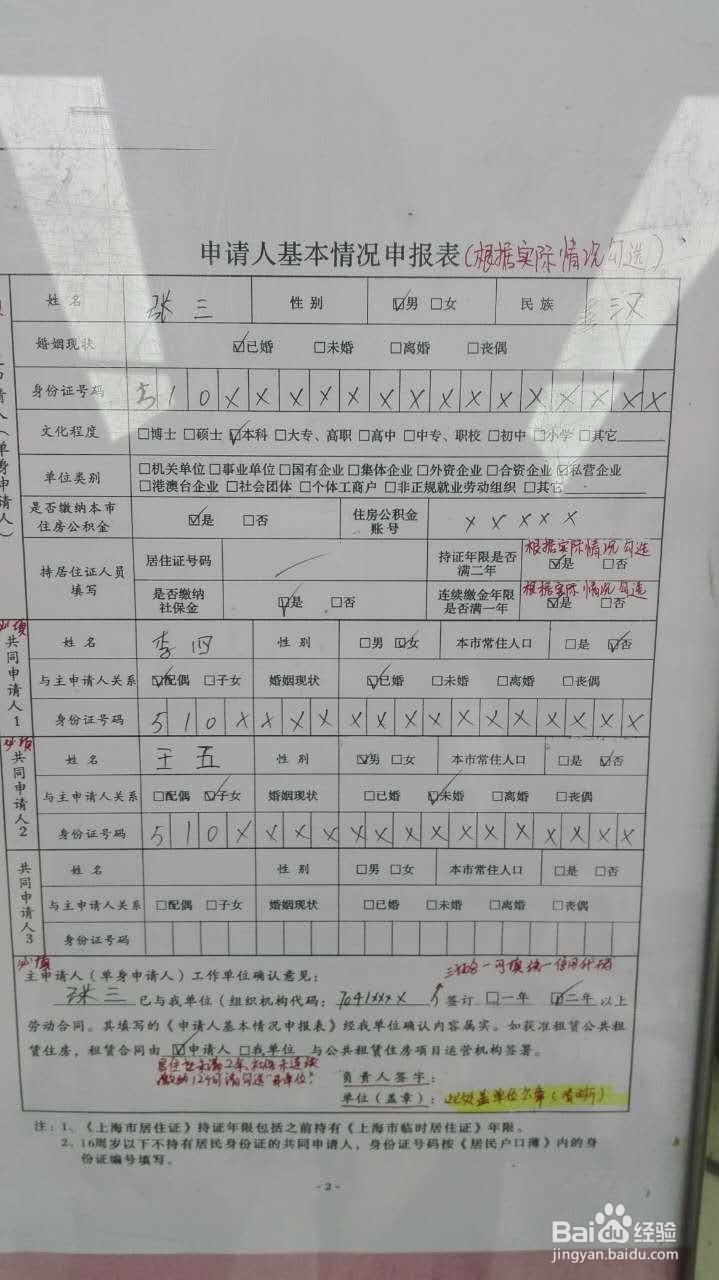 申请人基本情况申报表(根据实际情况勾选)
姓名 张三 性别 ☑男 □女 民族 汉
婚姻现状 ☑已婚 □未婚 □离婚 □丧偶
身份证号码 510XXXXXXXXXXXXXXX
文化程度 □博士 □硕士 ☑本科 □大专、高职 □高中 □中专、职校 □初中 □小学 □其它
单位类别 □机关单位 □事业单位 □国有企业 □集体企业 □外资企业 □合资企业 ☑私营企业
□港澳台企业 □社会团体 □个体工商户 □非正规就业劳动组织 □其它
是否缴纳本市住房公积金 ☑是 □否 住房公积金账号 XXXXX
持居住证人员填写 居住证号码 持证年限是否满二年 根据实际情况勾选 ☑是 □否
是否缴纳社保金 ☑是 □否 连续缴金年限是否满一年 根据实际情况勾选 ☑是 □否
必填
共同申请人1
姓名 李四 性别 □男 ☑女 本市常住人口 □是 ☑否
与主申请人关系 ☑配偶 □子女 婚姻现状 ☑已婚 □未婚 □离婚 □丧偶
身份证号码 510XXXXXXXXXXXXXXX
必填
共同申请人2
姓名 王五 性别 ☑男 □女 本市常住人口 □是 ☑否
与主申请人关系 □配偶 ☑子女 婚姻现状 □已婚 ☑未婚 □离婚 □丧偶
身份证号码 510XXXXXXXXXXXXXXX
共同申请人3
姓名 性别 □男 □女 本市常住人口 □是 □否
与主申请人关系 □配偶 □子女 婚姻现状 □已婚 □未婚 □离婚 □丧偶
身份证号码
必填
主申请人(单身申请人)工作单位确认意见: 三证合一可填统一信用代码
张三 已与我单位(组织机构代码: 7041XXXX )签订 □一年 ☑二年 以上
劳动合同。其填写的《申请人基本情况申报表》经我单位确认内容属实。如获准租赁公共租
赁住房,租赁合同由 ☑申请人 □我单位 与公共租赁住房项目运营机构签署。
居住证未满2年,社保未连续
缴纳12个月请勾选"我单位"
负责人签字:
单位(盖章): 此处盖单位公章(清晰)
注:1、《上海市居住证》持证年限包括之前持有《上海市临时居住证》年限。
2、16周岁以下不持有居民身份证的共同申请人,身份证号码按《居民户口薄》内的身
份证编号填写。
-2-
Baidu经验
jingyan.baidu.com